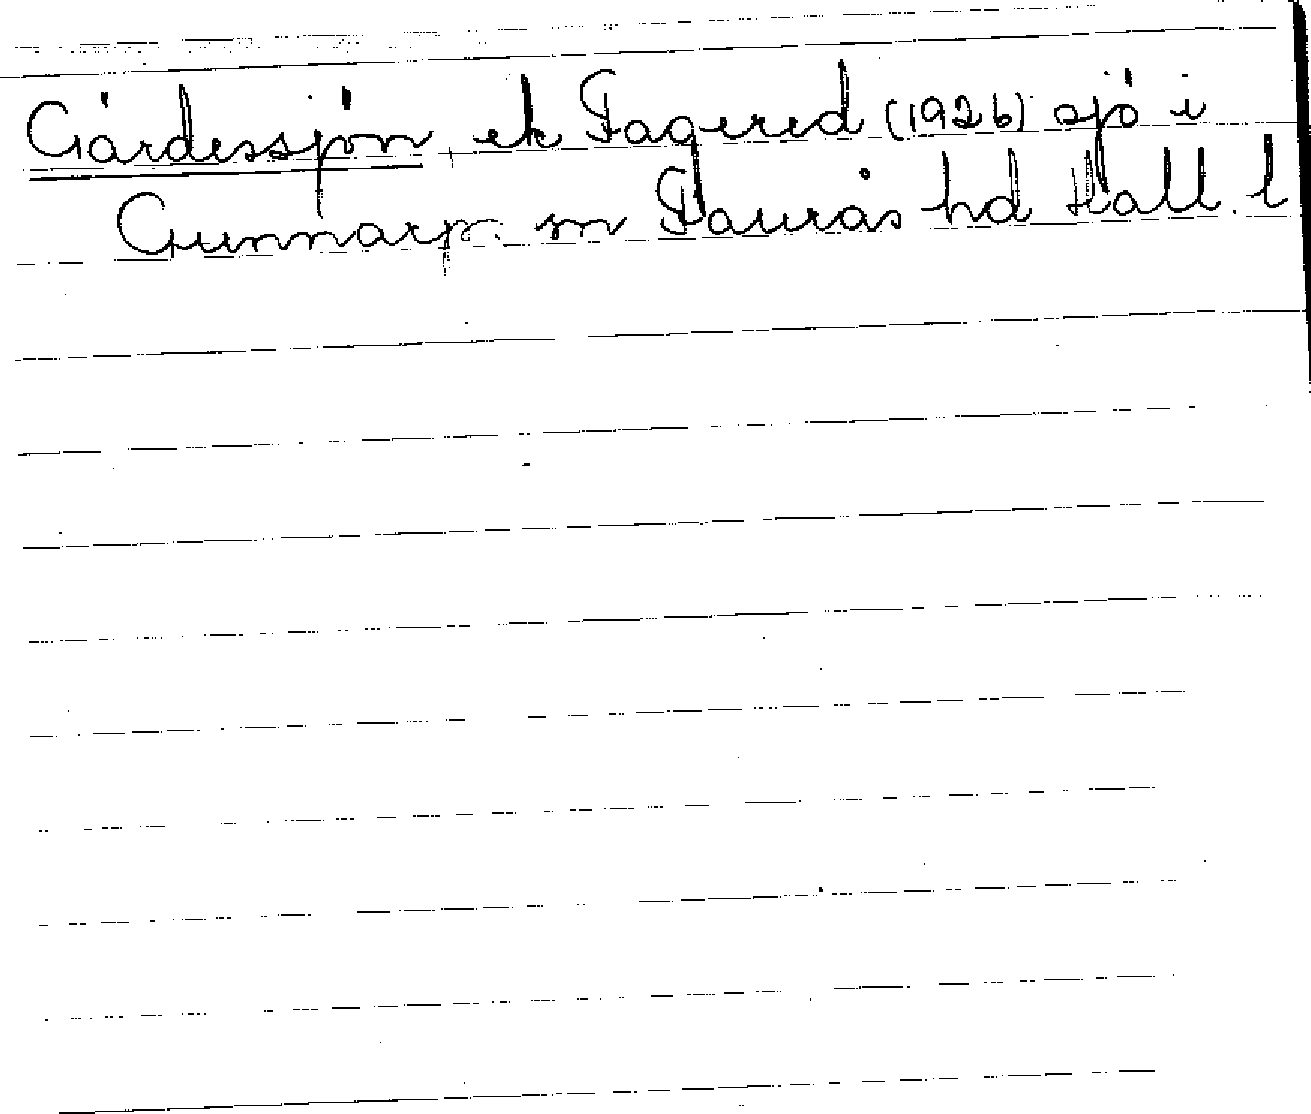 Gårdessjön, ek Fagered (1926) sjö i
Gunnarp sn Faurås hd Hall. l